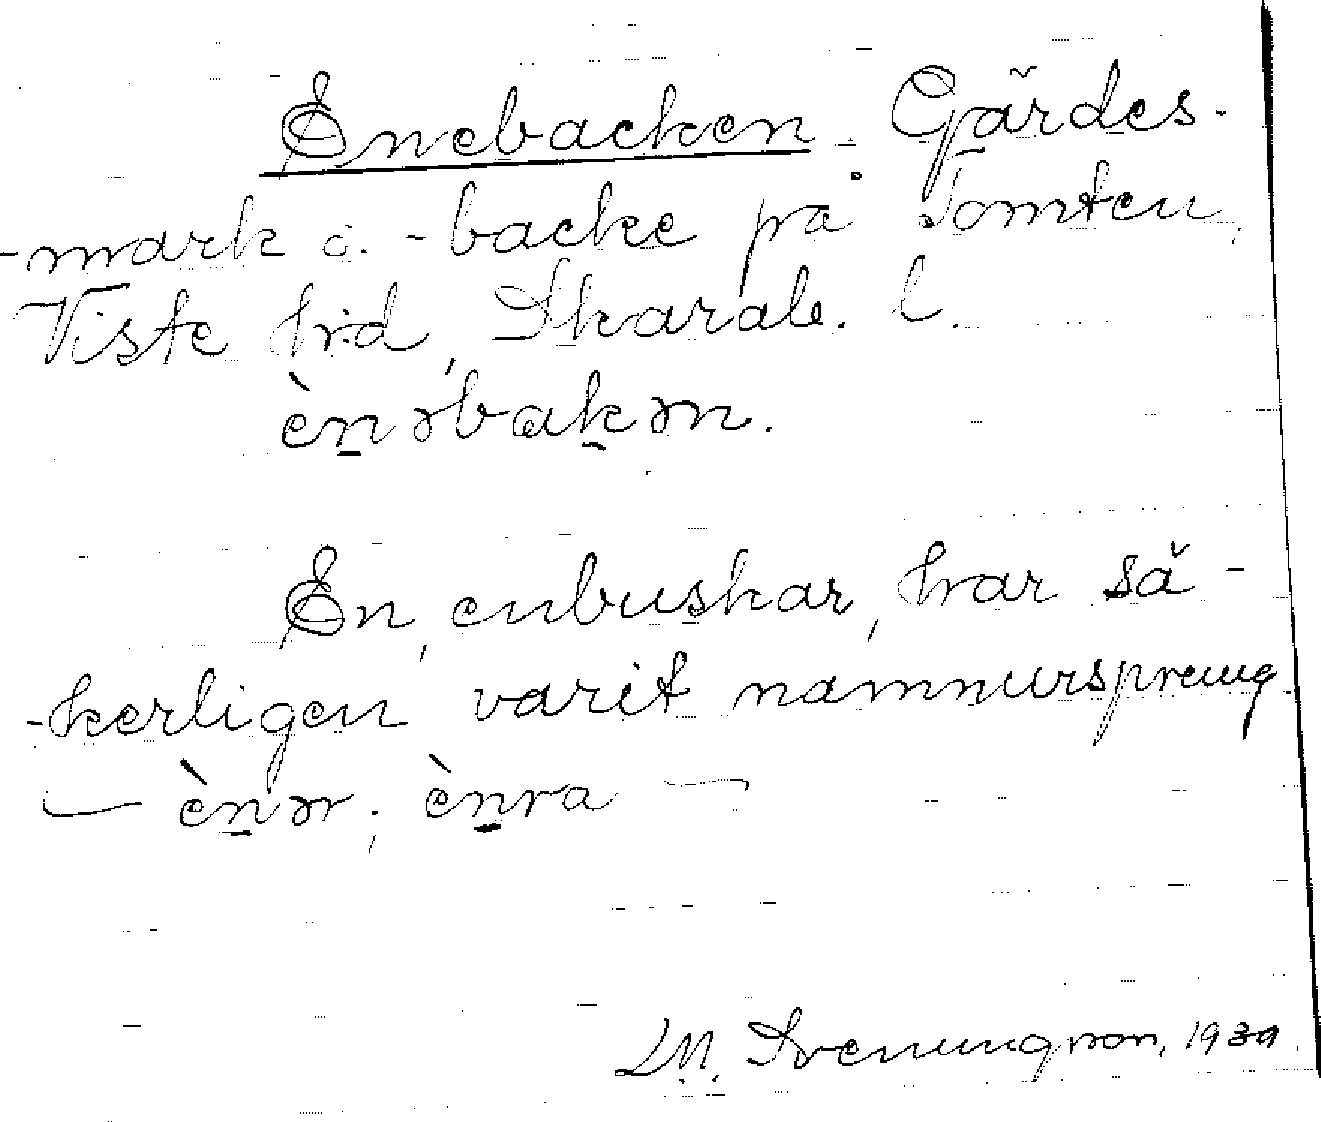 Enebacken. Gärdes-
-mark o. -backe på Tomten,
Viste hd, Skarab. l.
ènəbakən.
En, enbuskar, har sä-
-kerligen varit namnursprung
— ènər; ènra —
M. Svenungson, 1930.